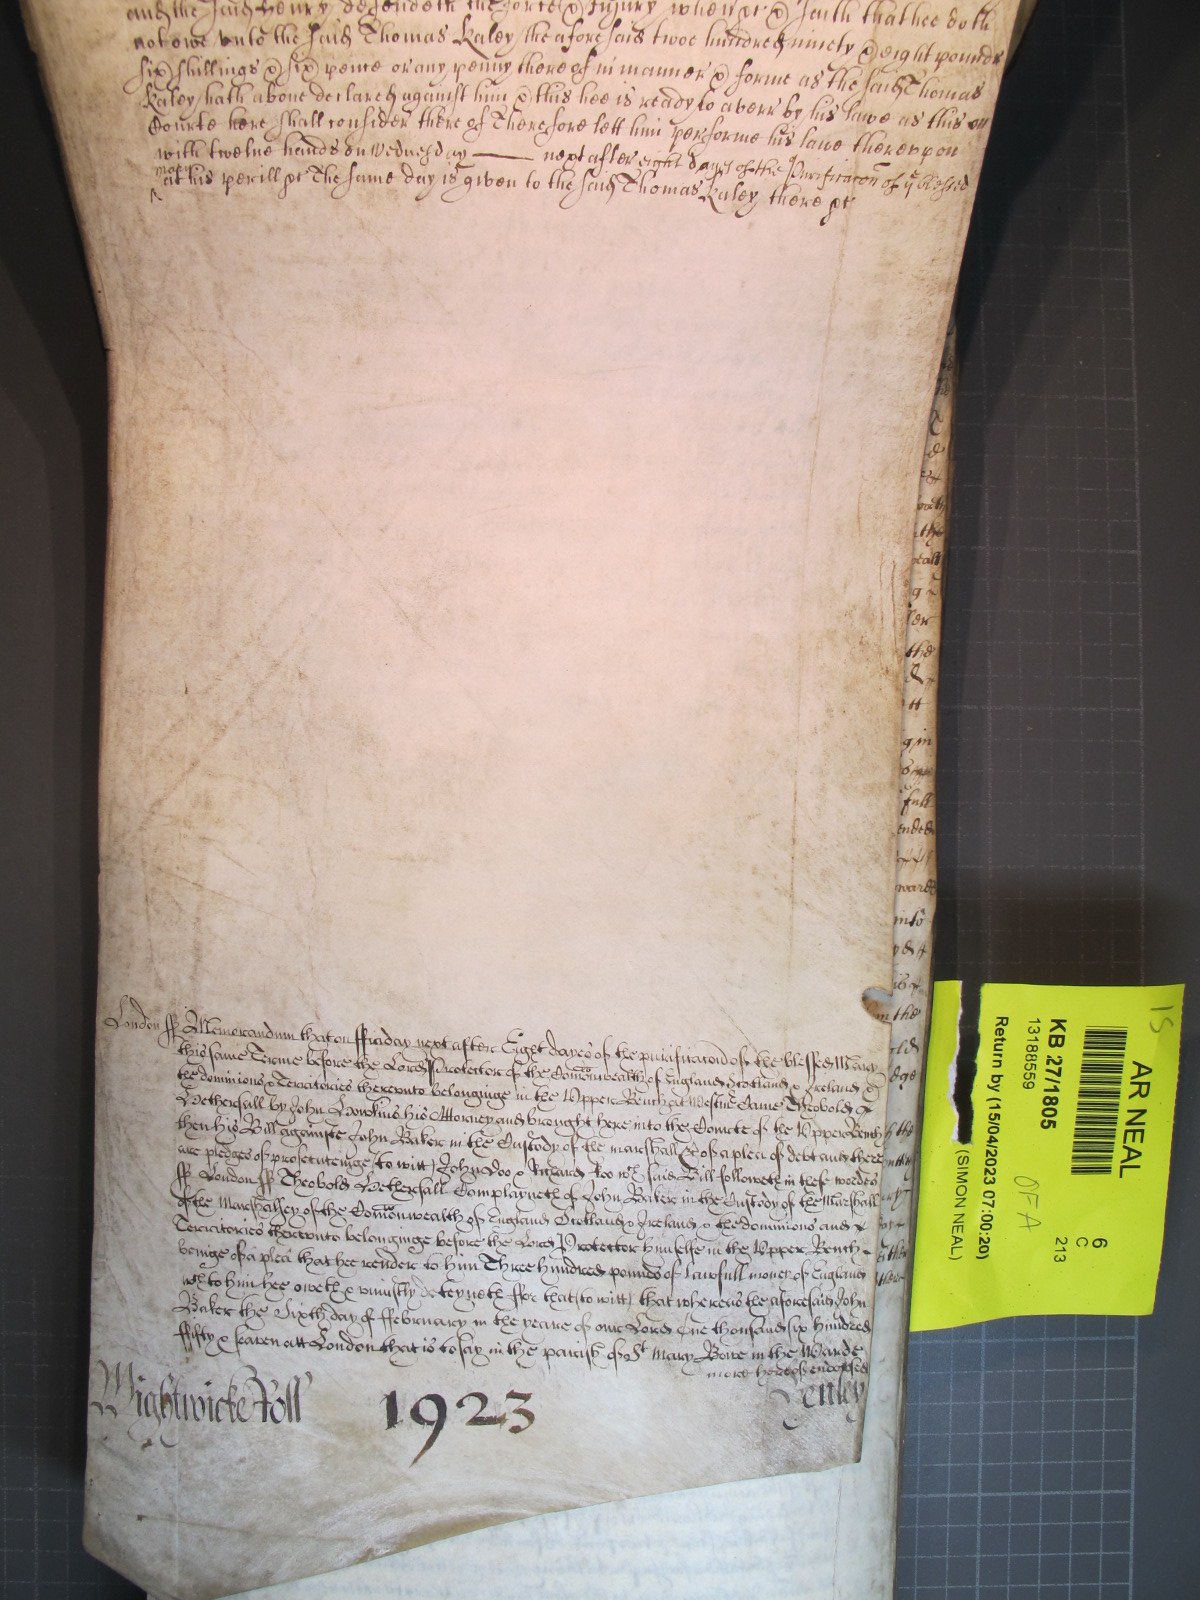 and the said Henry defendeth the force & Injury when &c & saith that hee doth
not owe unto the said Thomas Kaley the aforesaid twoe hundred ninety & eight pounds
six shillings & six pence or any penny thereof in manner & forme as the said Thomas
Kaley hath above declared against him & this hee is ready to averr by his lawe as this
Courte here shall consider thereof Therefore lett him performe his lawe thereupon
with twelve hands on Wednesday next after eight dayes of the Purificacon of ye blessed
at his perill &c The same day is given to the said Thomas Kaley there &c
London ss Memorandum that on ffriday next after Eight dayes of the purificacon of the blessed Mary
this same Terme before the Lord Protector of the Comonwealth of England Scotland & Ireland &
the dominions & Territories thereunto belonginge in the Upper Bench at Westmr Came Theobold
Hethersall by John Hawkins his Attorney and brought here into the Courte of the Upper Bench
then his Bill againste John Baker in the Custody of the marshall &c of a plea of debt and there
are pledges of prosecuteinge to witt John Doo & Richard Roo wch said Bill followeth in these wordes
ss London ss Theobold Hethersall Complayneth of John Baker in the Custody of the Marshall
of the Marshalsey of the Comonwealth of England Scotland & Ireland & the dominions and
Territories thereunto belonginge before the Lord Protector himselfe in the Upper Bench
beinge of a plea that hee render to him Three hundred pounds of lawfull money of England
wch to him hee oweth & uniustly deteyneth ffor that to witt that whereas the aforesaid John
Baker the Sixth day of ffebruary in the yeare of our Lord One thousand six hundred
ffifty & seaven att London that is to say in the parish of St Mary Bowe in the Warde
more hereof endorsed
Wightwicke Roll 1923 Henley
AR NEAL
KB 27/1805
13188559
Return by (15/04/2023 07:00:20)
(SIMON NEAL)
6
C
213
OFA
15